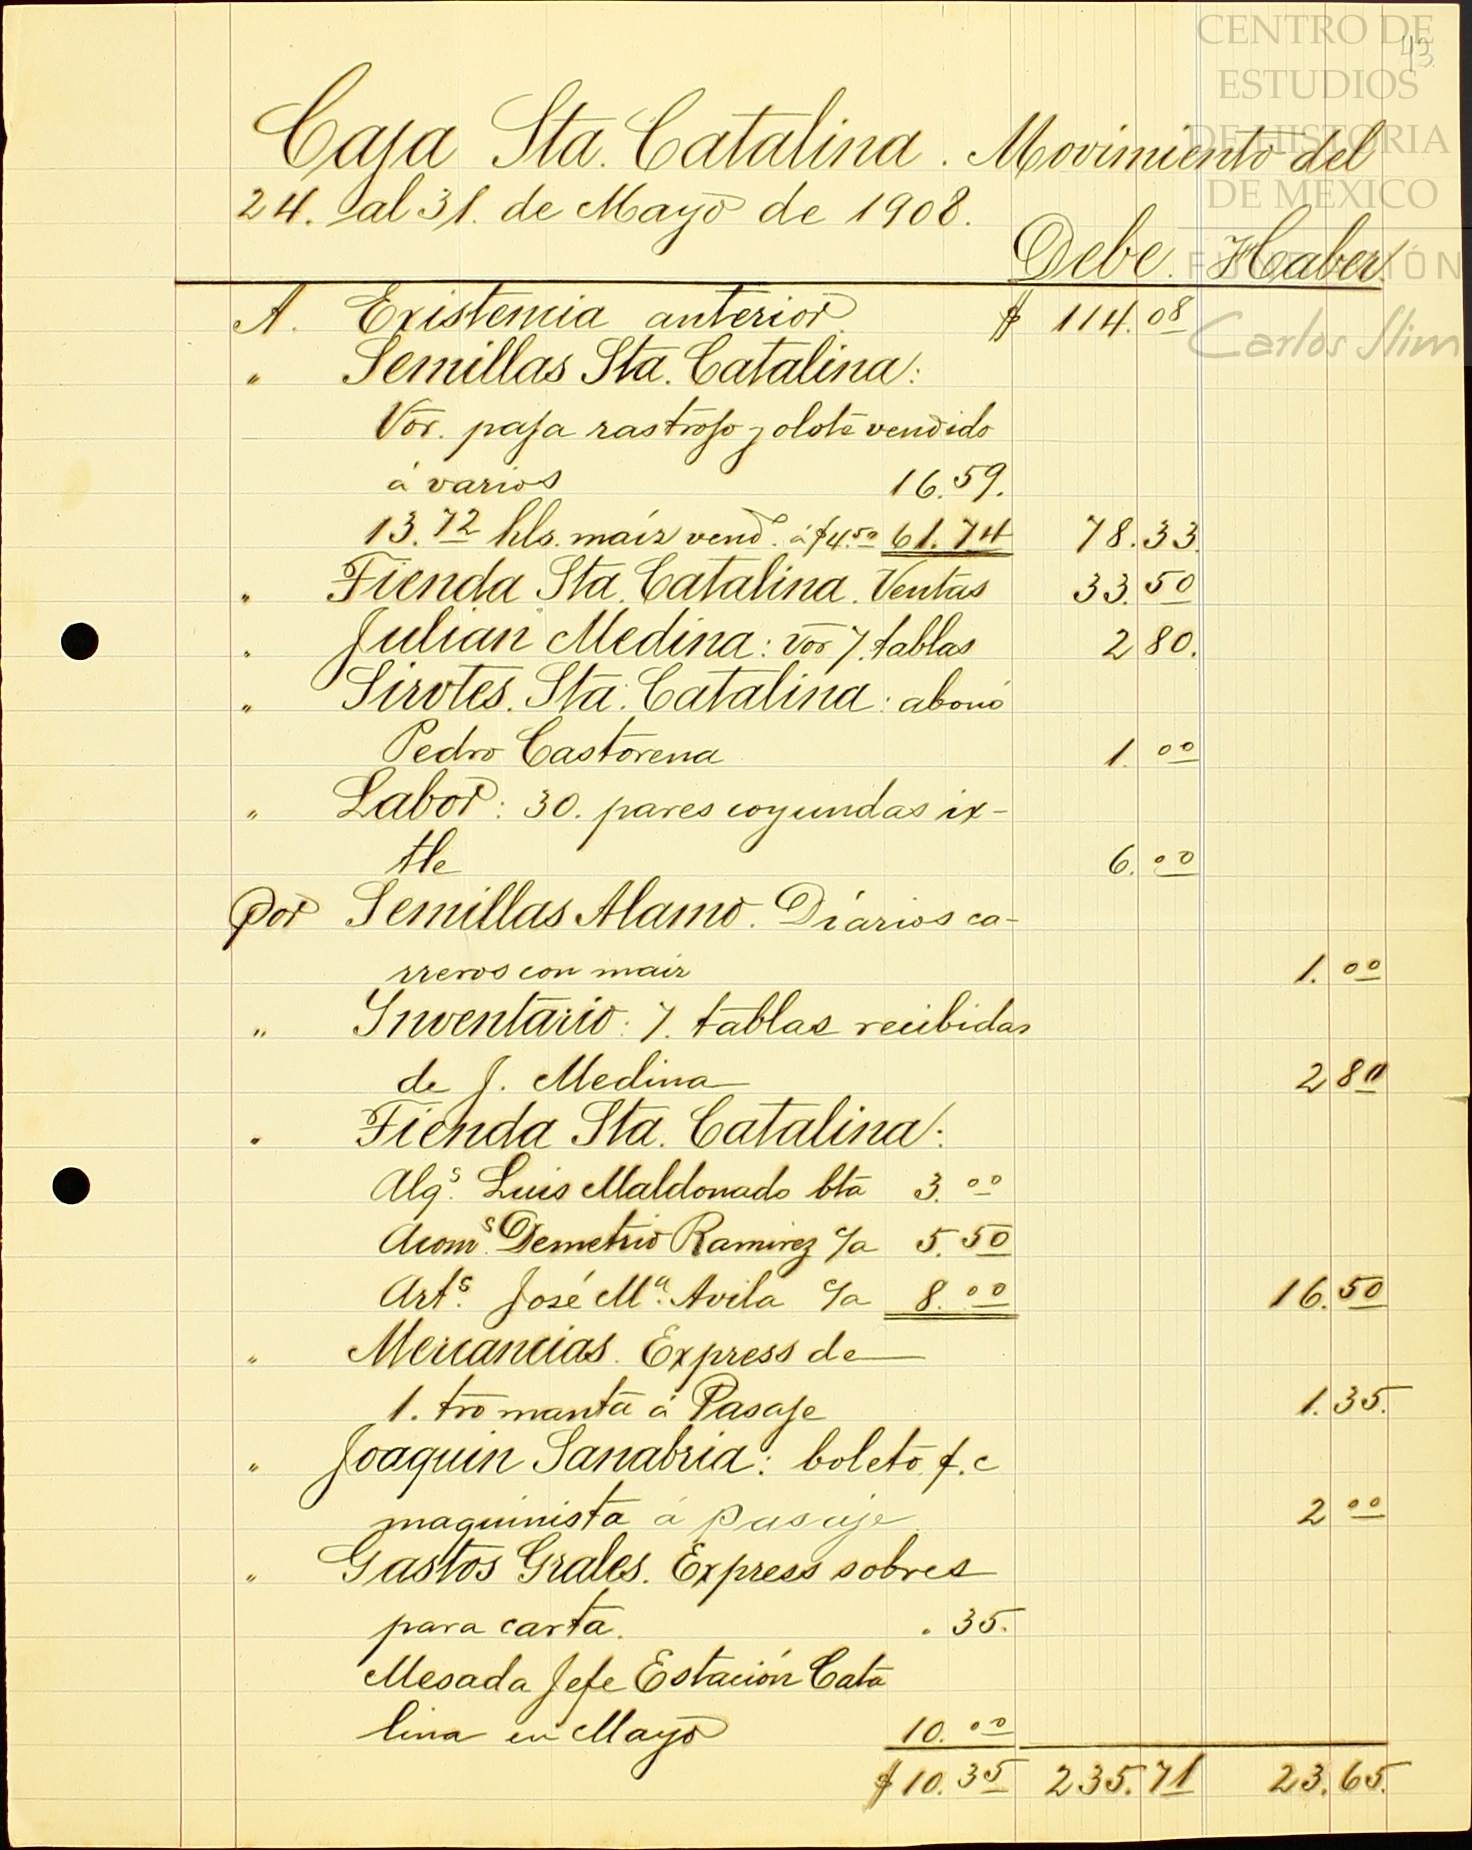 CENTRO DE
ESTUDIOS
DE HISTORIA
DE MEXICO
FUNDACIÓN
Carlos Slim
43
Caja Sta. Catalina. Movimiento del
24. al 31. de Mayo de 1908.
Debe. Haber.
A. Existencia anterior. $ 114.08
" Semillas Sta. Catalina:
Vor. paja rastrojo y olote vendido
á varios 16.59.
13.72 hls. maíz vend. á $4.50 61.74 78.33
" Tienda Sta. Catalina. Ventas 33.50
" Julian Medina: vor 7. tablas 2 80.
" Sirvtes. Sta. Catalina: abonó
Pedro Castorena 1.00
" Labor: 30. pares coyundas ix-
tle 6.00
Por Semillas Alamo. Diarios ca-
rreros con maiz 1.00
" Inventario: 7. tablas recibidas
de J. Medina 2 80
" Tienda Sta. Catalina:
Alqs. Luis Maldonado bta 3.00
Acoms. Demetrio Ramirez c/a 5.50
Arts. José Ma. Avila c/a 8.00 16.50
" Mercancias. Express de
1. tro manta á Pasaje 1.35.
" Joaquin Sanabria: boleto f.c
maquinista á pasaje 2 00
" Gastos Grales. Express sobres
para carta. .35.
Mesada Jefe Estación Cata
lina en Mayo 10.00
$10.35 235.71 23.65.